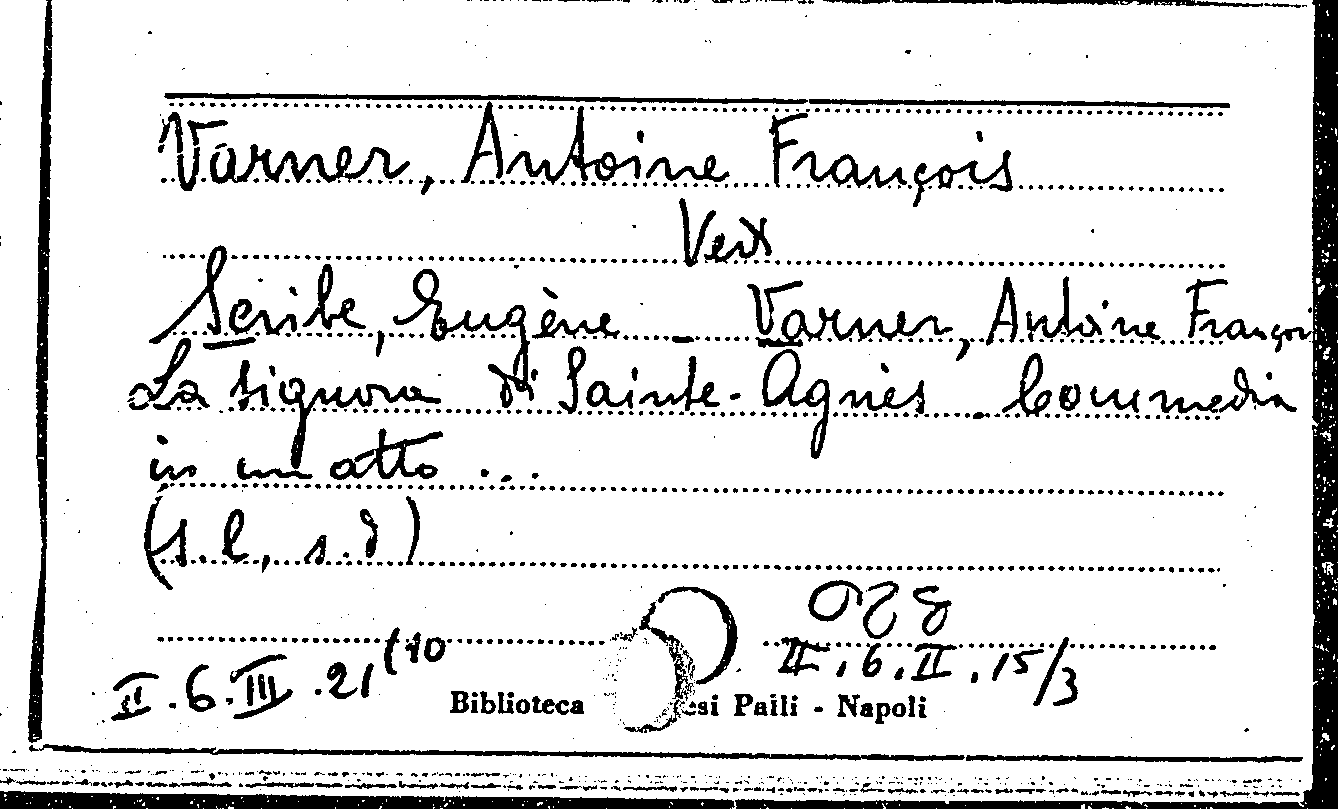 Varner, Antoine François
Scribe, Eugène - Varner, Antoine Françoi
La signora di Sainte-Agnès. Commedia
in un atto ...
(s.l, s.d)
II.6.III.21(10
II.6.II.15/3
Biblioteca esi Paili - Napoli